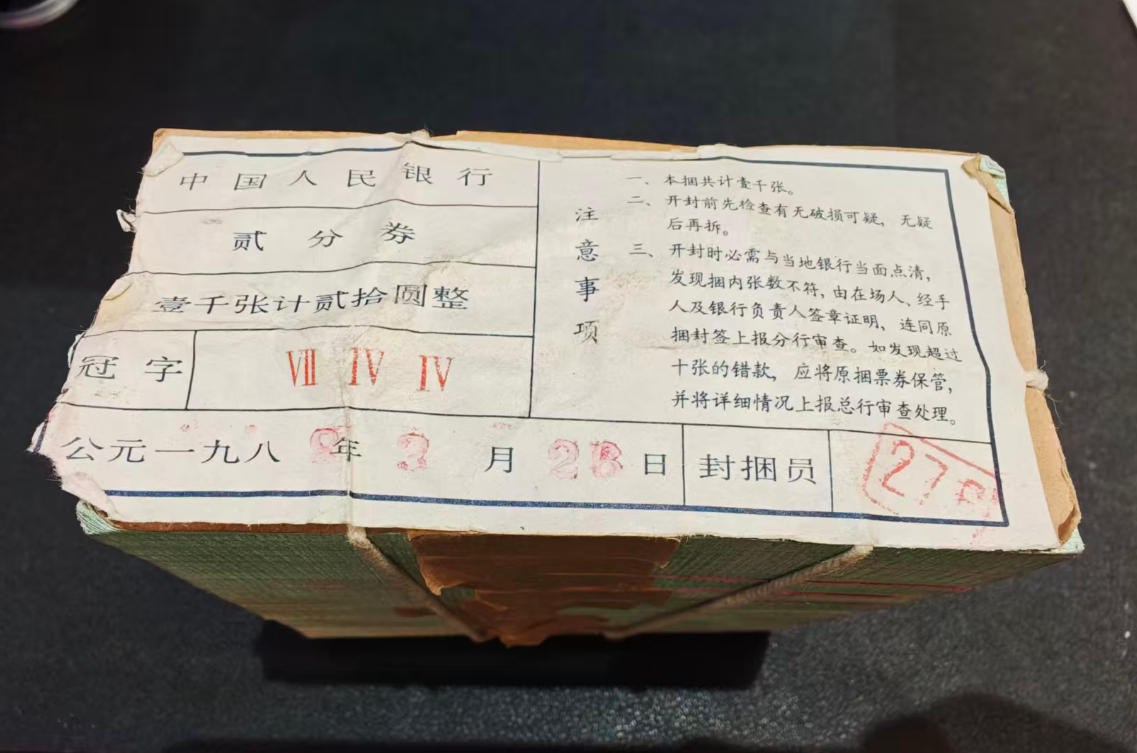 中国人民银行
贰分券
壹千张计贰拾圆整
冠字 Ⅶ Ⅳ Ⅳ
公元一九八8年3月28日 封捆员 27
注意事项
一、本捆共计壹千张。
二、开封前先检查有无破损可疑，无疑
后再拆。
三、开封时必需与当地银行当面点清，
发现捆内张数不符，由在场人、经手
人及银行负责人签章证明，连同原
捆封签上报分行审查。如发现超过
十张的错款，应将原捆票券保管，
并将详细情况上报总行审查处理。